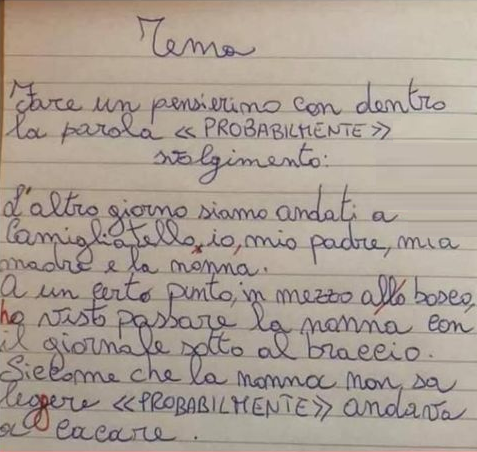 Tema
Fare un pensierino con dentro
la parola «PROBABILMENTE»
svolgimento:
L'altro giorno siamo andati a
Camigliatello, io, mio padre, mia
madre e la nonna.
A un certo punto, in mezzo allo bosco,
ho visto passare la nonna con
il giornale sotto al braccio.
Siccome che la nonna non sa
leggere «PROBABILMENTE» andava
a cacare.